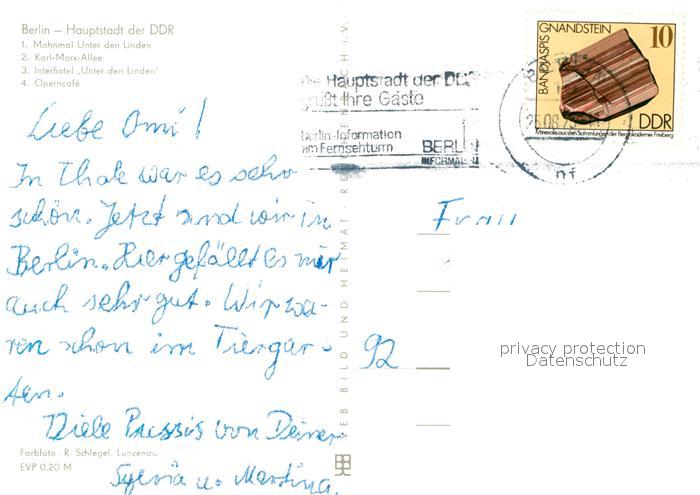 Berlin – Hauptstadt der DDR
1. Mahnmal Unter den Linden
2. Karl-Marx-Allee
3. Interhotel „Unter den Linden"
4. Operncafé
Liebe Omi!
In Thale war es sehr
schön. Jetzt sind wir in
Berlin. Hier gefällt es mir
auch sehr gut. Wir wa-
ren schon im Tiergar-
ten.
Viele Bussis von Deiner
Sylvia u. Martina.
Farbfoto: R. Schlegel, Lunzenau
EVP 0,20 M
BILD UND HEIMAT
I.V.
Hauptstadt der DDR
grüßt Ihre Gäste
Berlin-Information
am Fernsehturm
BERLIN
INFORMATION
BANDJASPIS GNANDSTEIN
10
DDR
Minerale aus den Sammlungen der Bergakademie Freiberg
25.08.75
Frau
92
privacy protection
Datenschutz